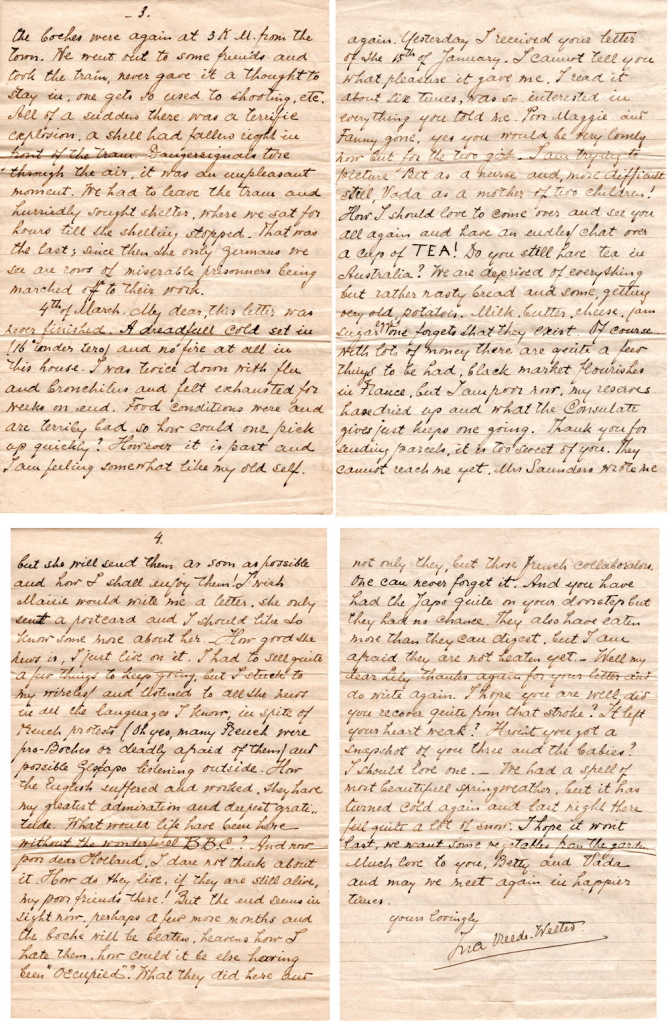 - 3.
the Boches were again at 3 K.M. from the
town. We went out to some friends and
took the train, never gave it a thought to
stay in, one gets so used to shooting, etc.
All of a sudden there was a terrific
explosion, a shell had fallen right in
front of the tram. Dangersignals tore
through the air, it was an unpleasant
moment. We had to leave the tram and
hurriedly sought shelter, where we sat for
hours till the shelling stopped. That was
the last; since then the only Germans we
see are rows of miserable prisonners being
marched off to their work.
4th of March. My dear, this letter was
never finished. A dreadfull cold set in
(16° under zero) and no fire at all in
this house. I was twice down with flu
and bronchitis and felt exhausted for
weeks on end. Food conditions were and
are terribly bad, so how could one pick
up quickly? However it is past and
I am feeling somewhat like my old self.
again. Yesterday I received your letter
of the 15th of January. I cannot tell you
what pleasure it gave me, I read it
about six times, was so interested in
everything you told me. Poor Maggie and
Fanny gone, yes you would be very lonely
now but for the two girls. I am trying to
picture Bet as a nurse and, more difficult
still, Vada as a mother of two children!
How I should love to come over and see you
all again and have an endless chat over
a cup of TEA! Do you still have tea in
Australia? We are deprived of everything
but rather nasty bread and some, getting
very old, potatoes. Milk, butter, cheese, jam
sugar?? one forgets that they exist. Of course
with lots of money there are quite a few
things to be had, black market flourishes
in France, but I am poor now, my reserves
have dried up and what the Consulate
gives just keeps one going. Thank you for
sending parcels, it is too sweet of you. They
cannot reach me yet, Mrs Saunders wrote me
4.
but she will send them as soon as possible
and how I shall enjoy them! I wish
Maisie would write me a letter, she only
sent a postcard and I should like to
know some more about her. - How good the
news is, I just live on it. I had to sell quite
a few things to keep going, but I stuck to
my wireless and listened to all the news
in all the languages I know, in spite of
French protests (Oh yes, many French were
pro-Boches or deadly afraid of them) and
possible Gestapo listening outside. How
the English suffered and worked, they have
my greatest admiration and deepest grati-
tude. What would life have been here
without the wonderfull B.B.C.? And now
poor dear Holland, I dare not think about
it. How do they live, if they are still alive,
my poor friends there! But the end seems in
sight now, perhaps a few more months and
the boche will be beaten, heavens how I
hate them, how could it be else having
been "occupied"? What they did here and
not only they, but those french collaborators.
One can never forget it. And you have
had the Japs quite on your doorstep but
they had no chance, they also have eaten
more than they can digest, but I am
afraid they are not beaten yet. - Well my
dear Lily, thanks again for your letter and
do write again. I hope you are well did
you recover quite from that stroke? It left
your heart weak? Havn't you got a
snapshot of you three and the babies?
I should love one. - We had a spell of
most beautifull springweather, but it has
turned cold again and last night there
fell quite a lot of snow. I hope it won't
last, we want some vegetables from the garden.
Much love to you, Betty and Vada
and may we meet again in happier
times.
yours lovingly